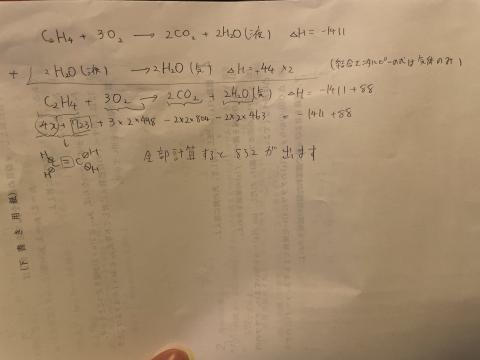 C₂H₄ + 3O₂ → 2CO₂ + 2H₂O(液) ΔH = -1411
+) 2H₂O(液) → 2H₂O(気) ΔH = +44 × 2 (結合エネルギーの式は気体のみ)
C₂H₄ + 3O₂ → 2CO₂ + 2H₂O(気) ΔH = -1411 + 88
4x + 723 + 3 × 2 × 498 - 2×2×804 - 2×2×463 = -1411 + 88
H H
C = C
H H
全部計算すると 832 が出ます
(下書き用紙)